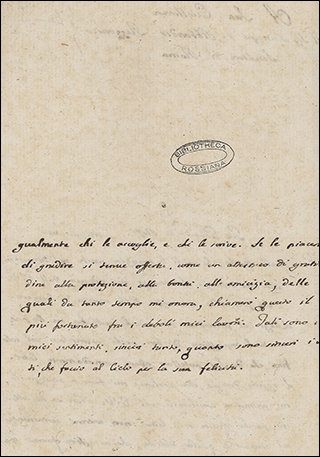 BIBLIOTHECA
ROSSIANA
gualmente chi le accoglie, e chi le scrive. Se le piacerà
di gradire sì tenue offerta, come un attestato di grati-
dine alla protezione, alla bontà, all'amicizia, delle
quali da tanto tempo mi onora, chiamerò questo il
più fortunato fra i deboli miei lavori. Tali sono i
miei sentimenti, sinceri tanto, quanto sono sinceri i
ti, che faccio al Cielo per la sua felicità.